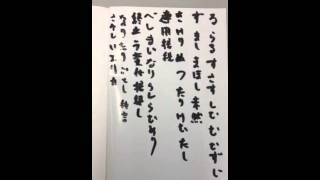 る らる す さす しむ む むず じ
ず まし まほし 未然
き けり ぬ つ たり けむ たし
連用接続
べし まじ なり らし らむ めり
終止 ラ変体接続し
なり たり ごとし 体言
さみしいエリカ